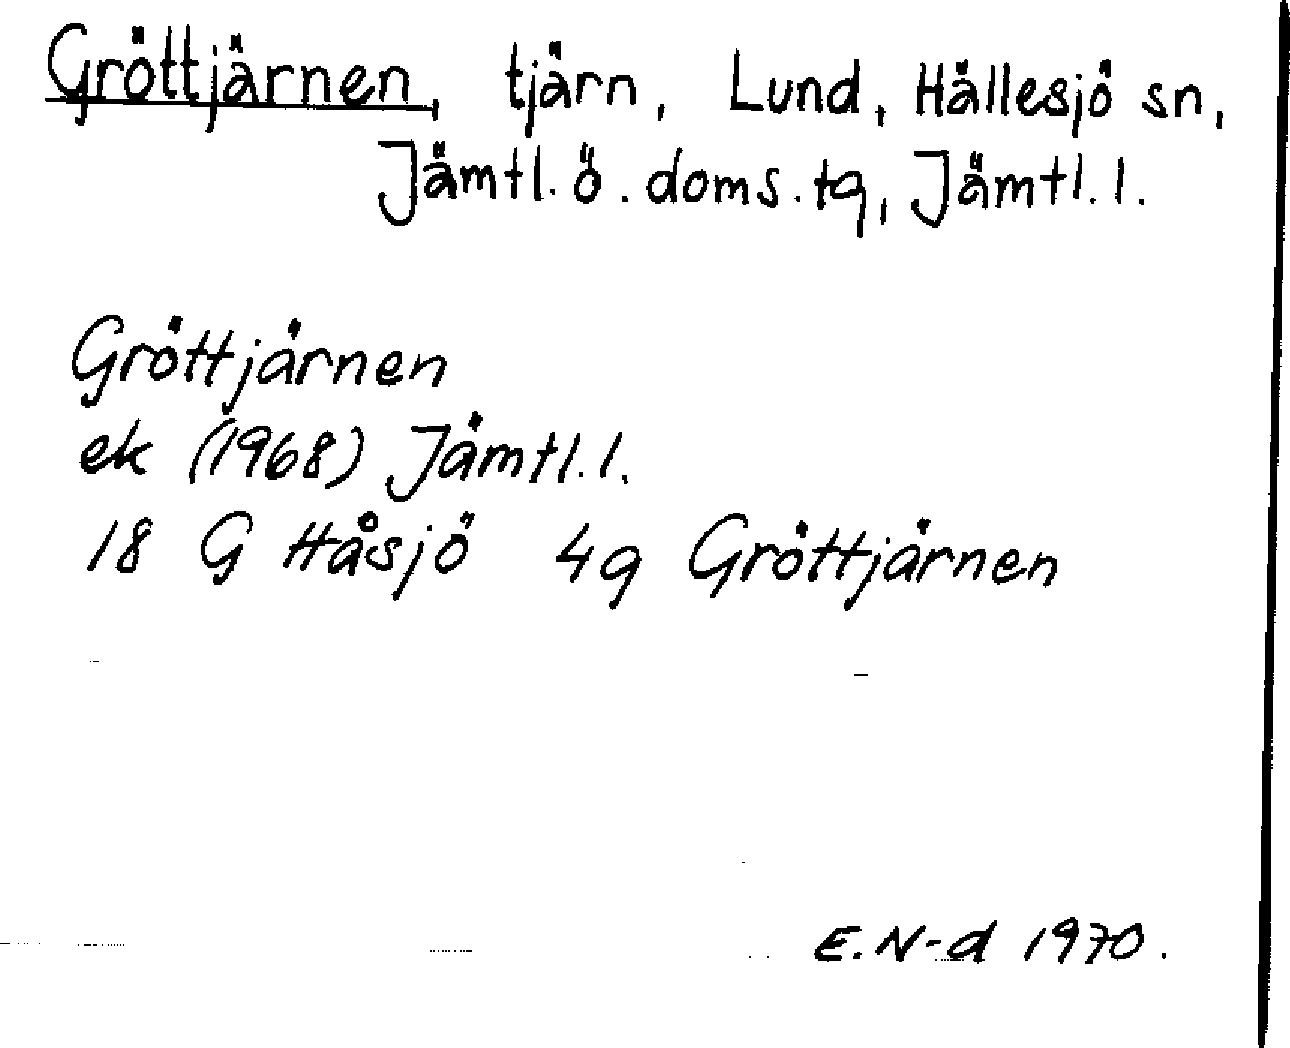 Gröttjärnen, tjärn, Lund, Hällesjö sn,
Jämtl. ö. doms. tg, Jämtl. l.
Gröttjärnen
ek (1968) Jämtl. l.
18 G Håsjö 4g Gröttjärnen
E. N-d 1970.